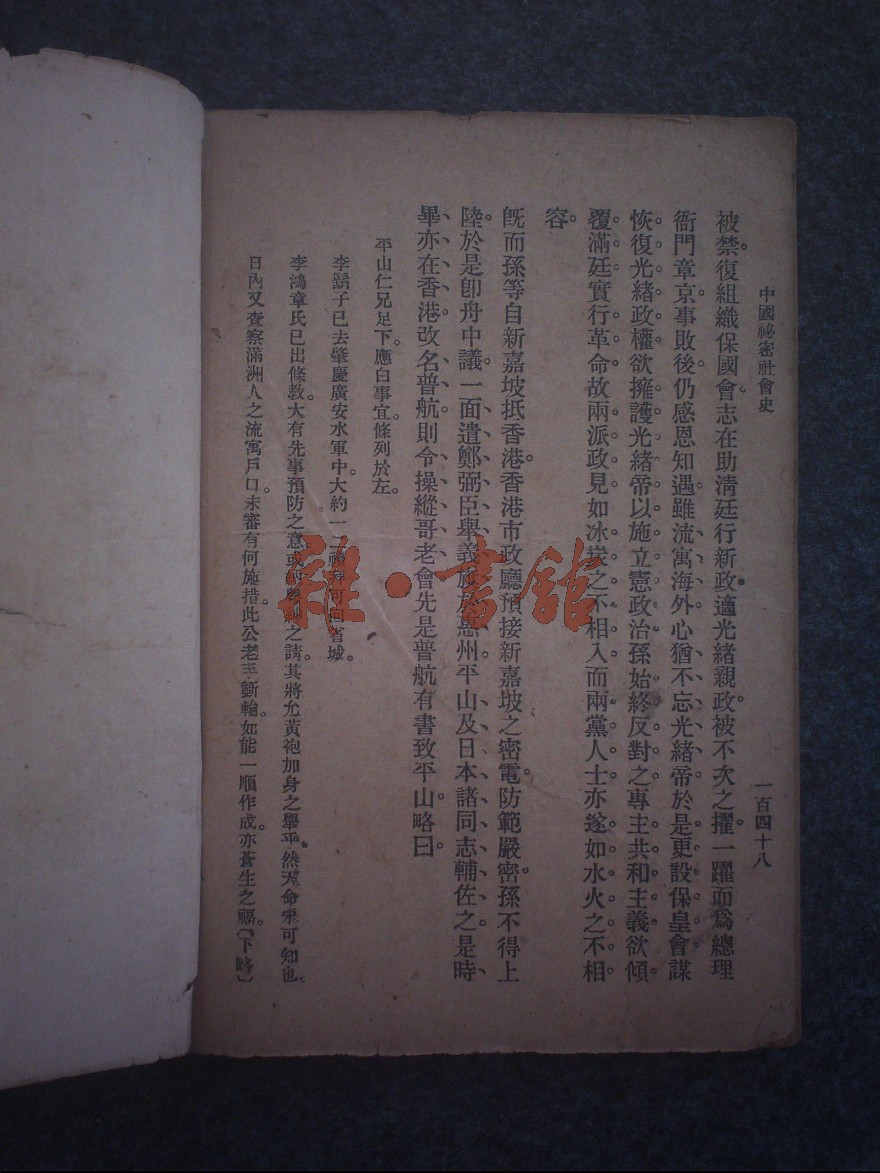 中國祕密社會史
一百四十八
被禁。復組織保國會。志在助淸廷行新政。適光緒親政。被不次之擢。一躍而爲總理
衙門章京。事敗後。仍感恩知遇。雖流寓海外。心猶不忘光緒帝。於是更設保皇會。謀
恢復光緒政權。欲擁護光緒帝以施立憲政治。孫始終反對之。專主共和主義。欲傾
覆滿廷。實行革命。故兩派政見。如冰炭之不相入。而兩黨人士。亦遂如水火之不相
容。
旣而孫等自新嘉坡抵香港。香港市政廳預接新嘉坡之密電。防範嚴密。孫不得上
陸。於是卽舟中議。一面遣鄭弼臣舉義旗於惠州。平山及日本諸同志輔佐之。是時
畢亦在香港。改名普航。則令操縱哥老會。先是普航有書致平山。略曰。
平山仁兄足下。應白事宜。條列於左。
李鬍子已去肇慶廣安水軍中。大約一二禮拜可回省城。
李鴻章氏已出條敎。大有先事預防之意。或 之請。其將允黃袍加身之舉乎。然天命未可知也。
日內又查察滿洲人之流寓戶口。未審有何施措。此公老手斲輪。如能一順作成。亦蒼生之福。(下略)
雜·書舘